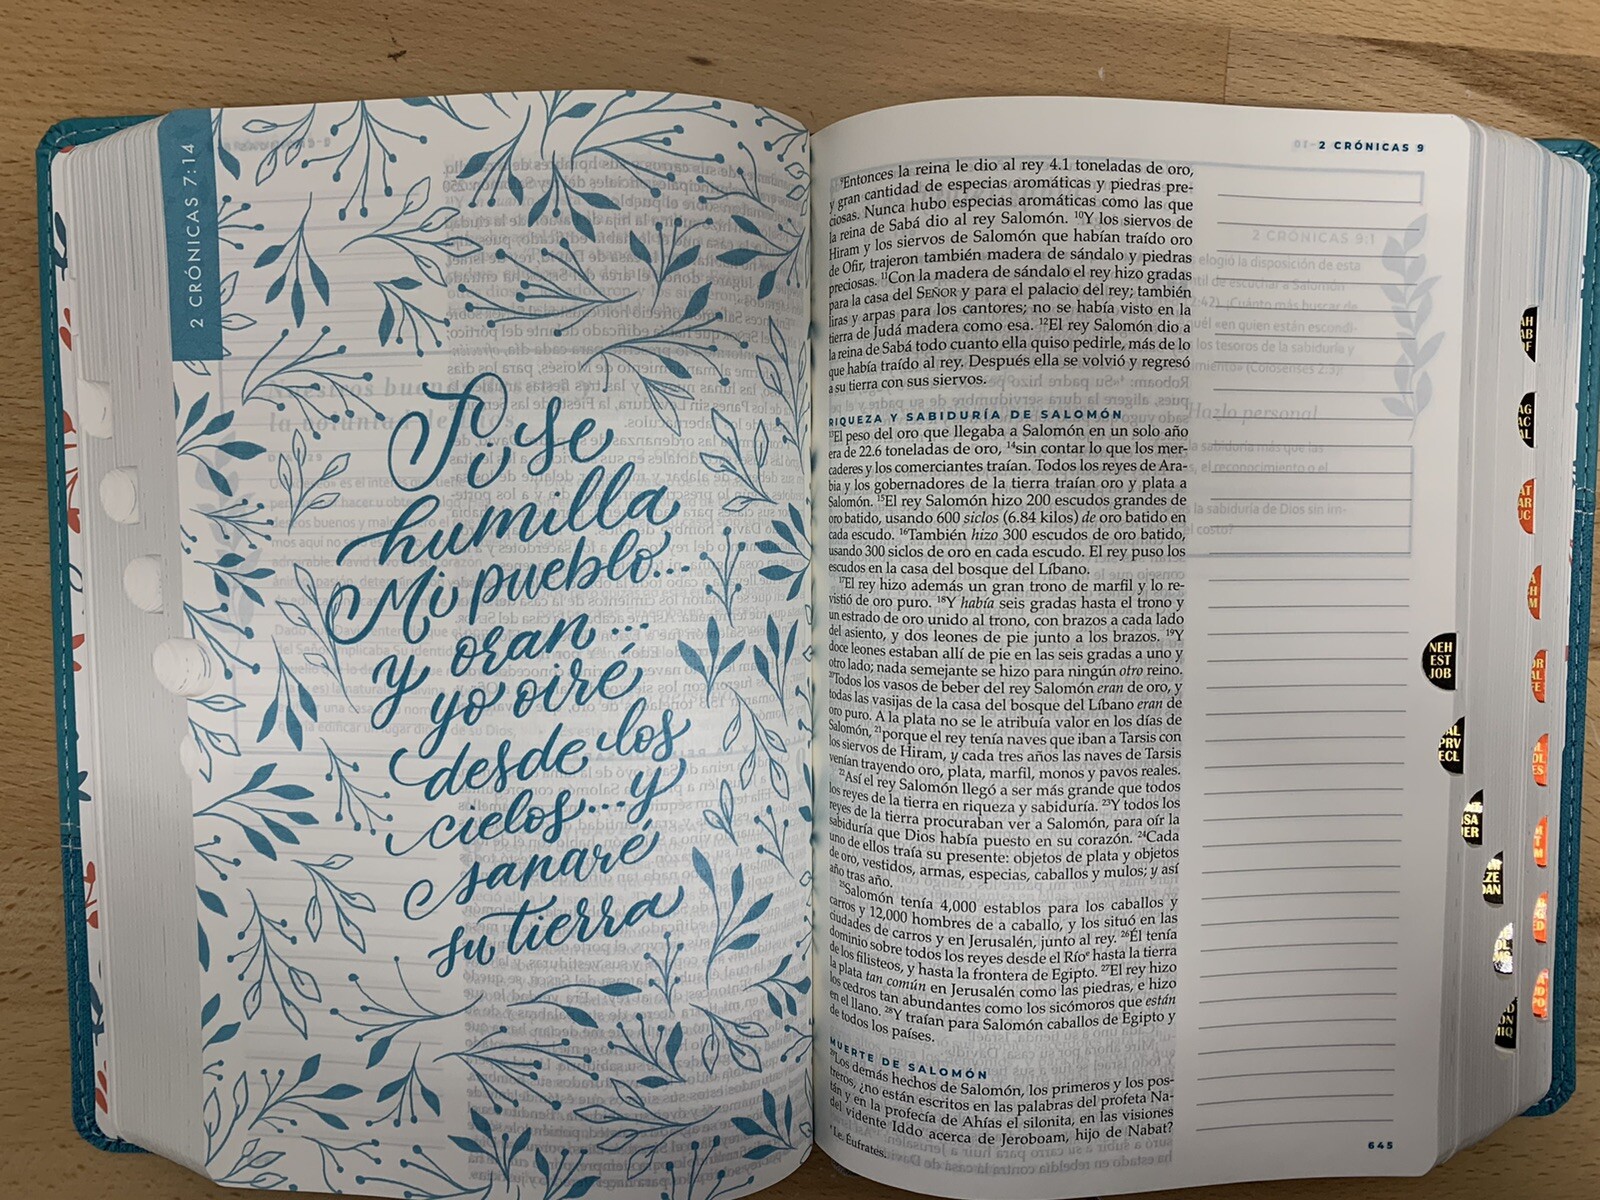 2 CRÓNICAS 7:14
Si se
humilla
Mi pueblo...
y oran...
yo oiré
desde los
cielos...y
sanaré
su tierra
2 CRÓNICAS 9
⁹Entonces la reina le dio al rey 4.1 toneladas de oro,
y gran cantidad de especias aromáticas y piedras pre-
ciosas. Nunca hubo especias aromáticas como las que
la reina de Sabá dio al rey Salomón. ¹⁰Y los siervos de
Hiram y los siervos de Salomón que habían traído oro
de Ofir, trajeron también madera de sándalo y piedras
preciosas. ¹¹Con la madera de sándalo el rey hizo gradas
para la casa del SEÑOR y para el palacio del rey; también
liras y arpas para los cantores; no se había visto en la
tierra de Judá madera como esa. ¹²El rey Salomón dio a
la reina de Sabá todo cuanto ella quiso pedirle, más de lo
que había traído al rey. Después ella se volvió y regresó
a su tierra con sus siervos.
RIQUEZA Y SABIDURÍA DE SALOMÓN
¹³El peso del oro que llegaba a Salomón en un solo año
era de 22.6 toneladas de oro, ¹⁴sin contar lo que los mer-
caderes y los comerciantes traían. Todos los reyes de Ara-
bia y los gobernadores de la tierra traían oro y plata a
Salomón. ¹⁵El rey Salomón hizo 200 escudos grandes de
oro batido, usando 600 siclos (6.84 kilos) de oro batido en
cada escudo. ¹⁶También hizo 300 escudos de oro batido,
usando 300 siclos de oro en cada escudo. El rey puso los
escudos en la casa del bosque del Líbano.
¹⁷El rey hizo además un gran trono de marfil y lo re-
vistió de oro puro. ¹⁸Y había seis gradas hasta el trono y
un estrado de oro unido al trono, con brazos a cada lado
del asiento, y dos leones de pie junto a los brazos. ¹⁹Y
doce leones estaban allí de pie en las seis gradas a uno y
otro lado; nada semejante se hizo para ningún otro reino.
²⁰Todos los vasos de beber del rey Salomón eran de oro, y
todas las vasijas de la casa del bosque del Líbano eran de
oro puro. A la plata no se le atribuía valor en los días de
Salomón, ²¹porque el rey tenía naves que iban a Tarsis con
los siervos de Hiram, y cada tres años las naves de Tarsis
venían trayendo oro, plata, marfil, monos y pavos reales.
²²Así el rey Salomón llegó a ser más grande que todos
los reyes de la tierra en riqueza y sabiduría. ²³Y todos los
reyes de la tierra procuraban ver a Salomón, para oír la
sabiduría que Dios había puesto en su corazón. ²⁴Cada
uno de ellos traía su presente: objetos de plata y objetos
de oro, vestidos, armas, especias, caballos y mulos; y así
año tras año.
²⁵Salomón tenía 4,000 establos para los caballos y
carros y 12,000 hombres de a caballo, y los situó en las
ciudades de carros y en Jerusalén, junto al rey. ²⁶Él tenía
dominio sobre todos los reyes desde el Ríoᵉ hasta la tierra
de los filisteos, y hasta la frontera de Egipto. ²⁷El rey hizo
la plata tan común en Jerusalén como las piedras, e hizo
los cedros tan abundantes como los sicómoros que están
en el llano. ²⁸Y traían para Salomón caballos de Egipto y
de todos los países.
MUERTE DE SALOMÓN
²⁹Los demás hechos de Salomón, los primeros y los pos-
treros, ¿no están escritos en las palabras del profeta Na-
tán y en la profecía de Ahías el silonita, en las visiones
del vidente Iddo acerca de Jeroboam, hijo de Nabat?
I.e. Éufrates.
645
NEH
EST
JOB
PRV
ECL
DAN